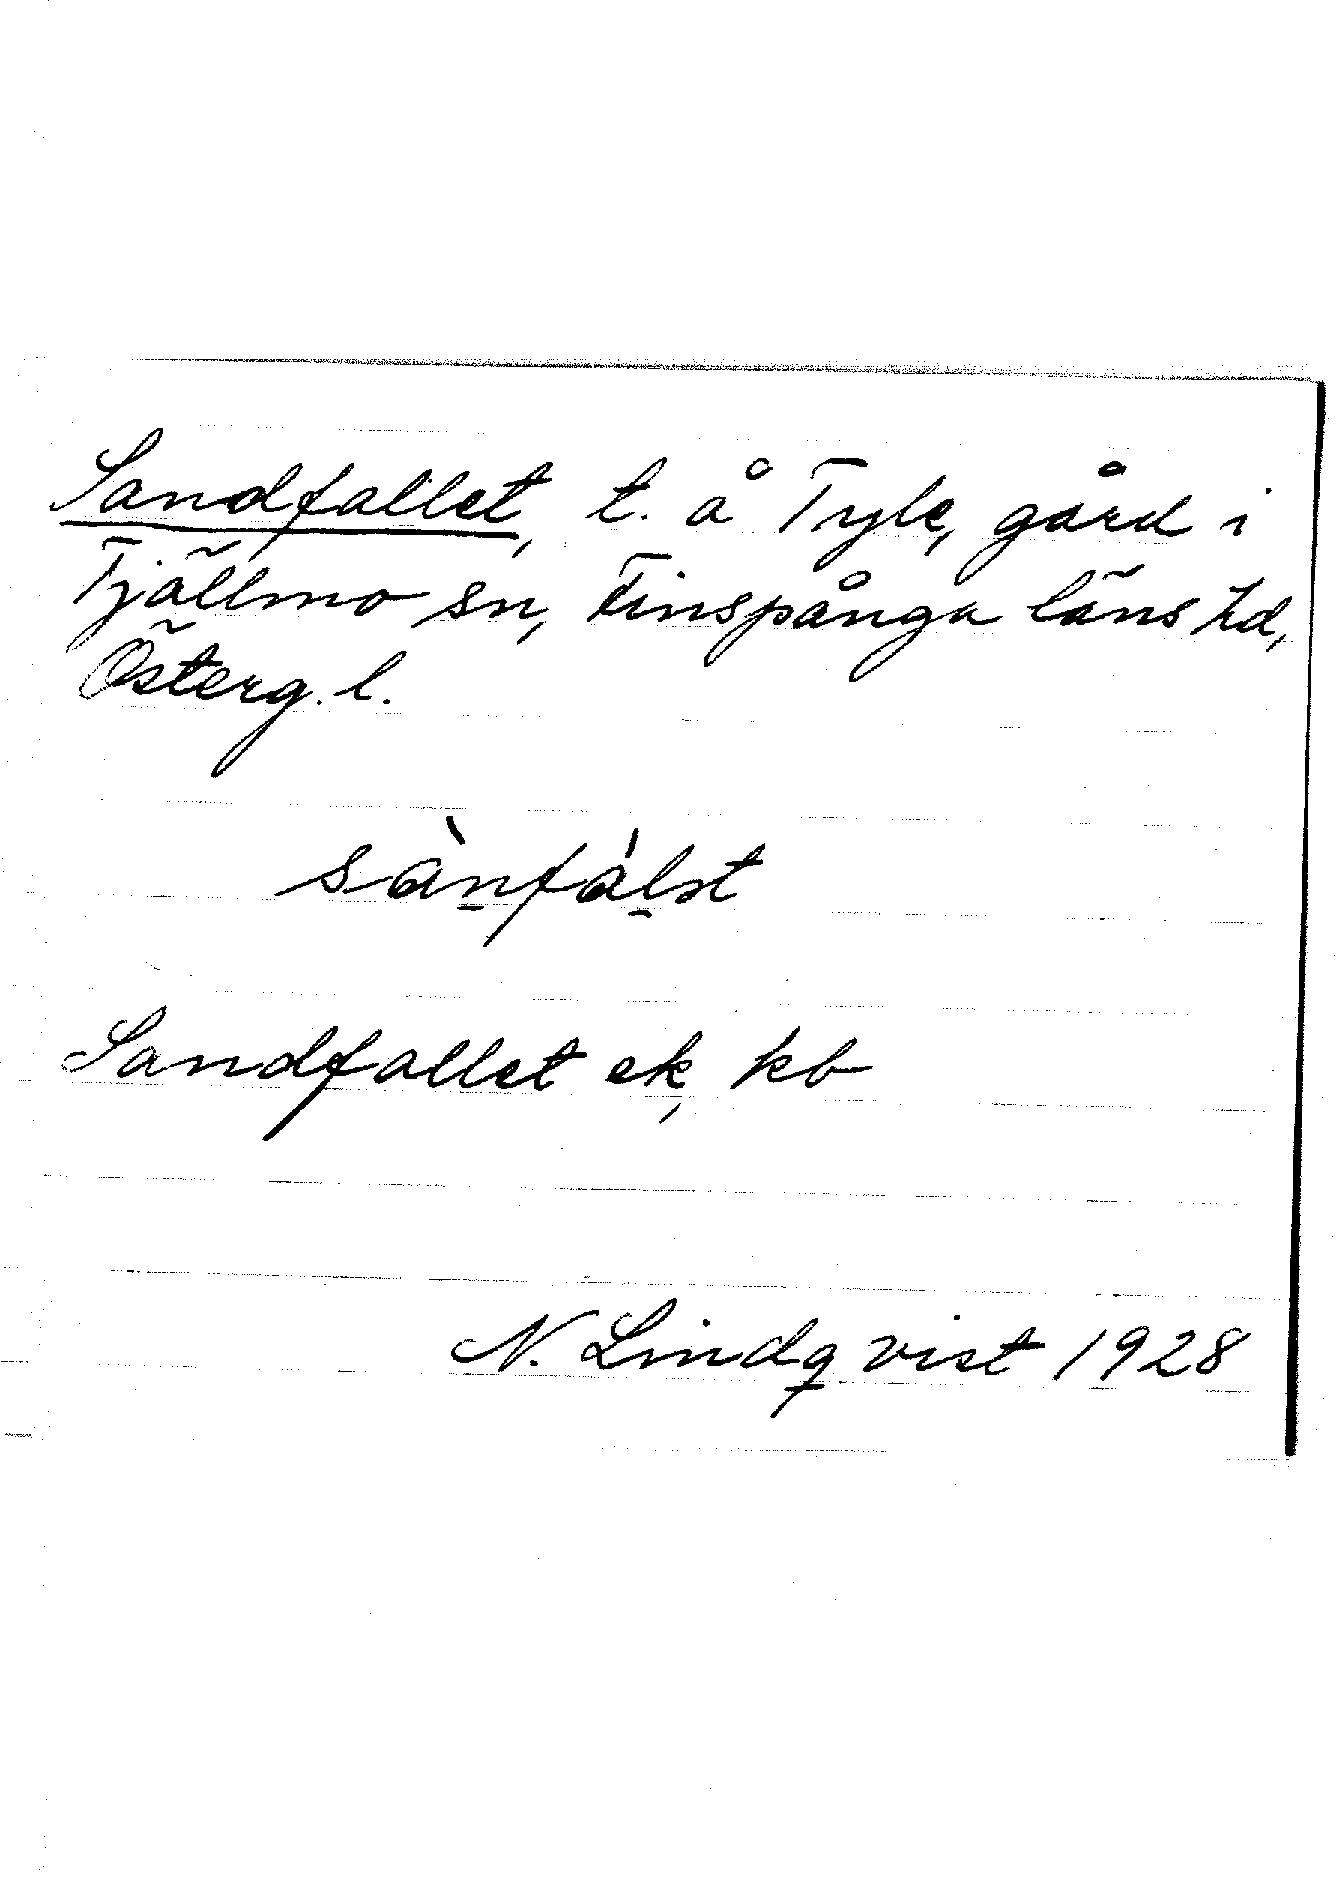 Sandfallet, t. å Tyle, gård i
Tjällmo sn, Finspånga läns hd,
Österg. l.
sàn̠fál̠ət
Sandfallet ek, kb
N. Lindqvist 1928